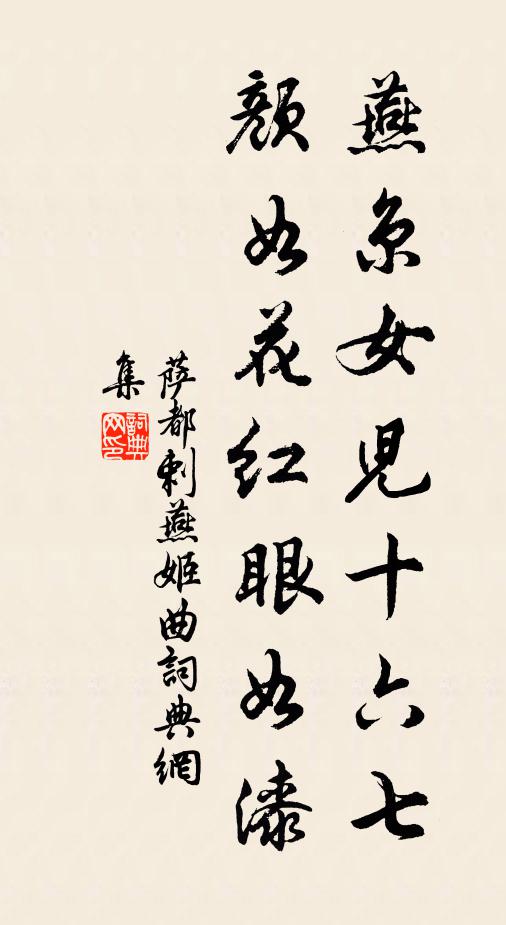 燕京女兒十六七
顏如花紅眼如漆
薩都剌燕姬曲詞典網
集
詞典網印